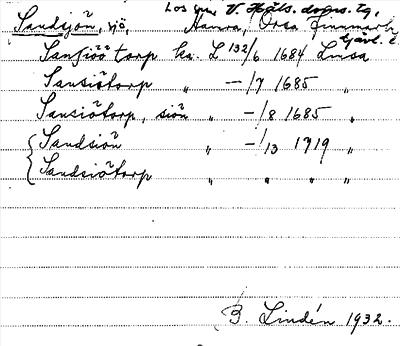 Los sn, V. Häls. doms. tg,
Sandsjön, sjö, Hamra, Orsa Finnmark
Gävl. l.
Sansiöö torp ka. L 132/6 1684 Lmsa
Sansiötorp " —/7 1685 "
Sansiötorp, siön " —/8 1685 "
Sandsiön " —/13 1719 "
Sandsiötorp " " " "
B. Lindén 1932.